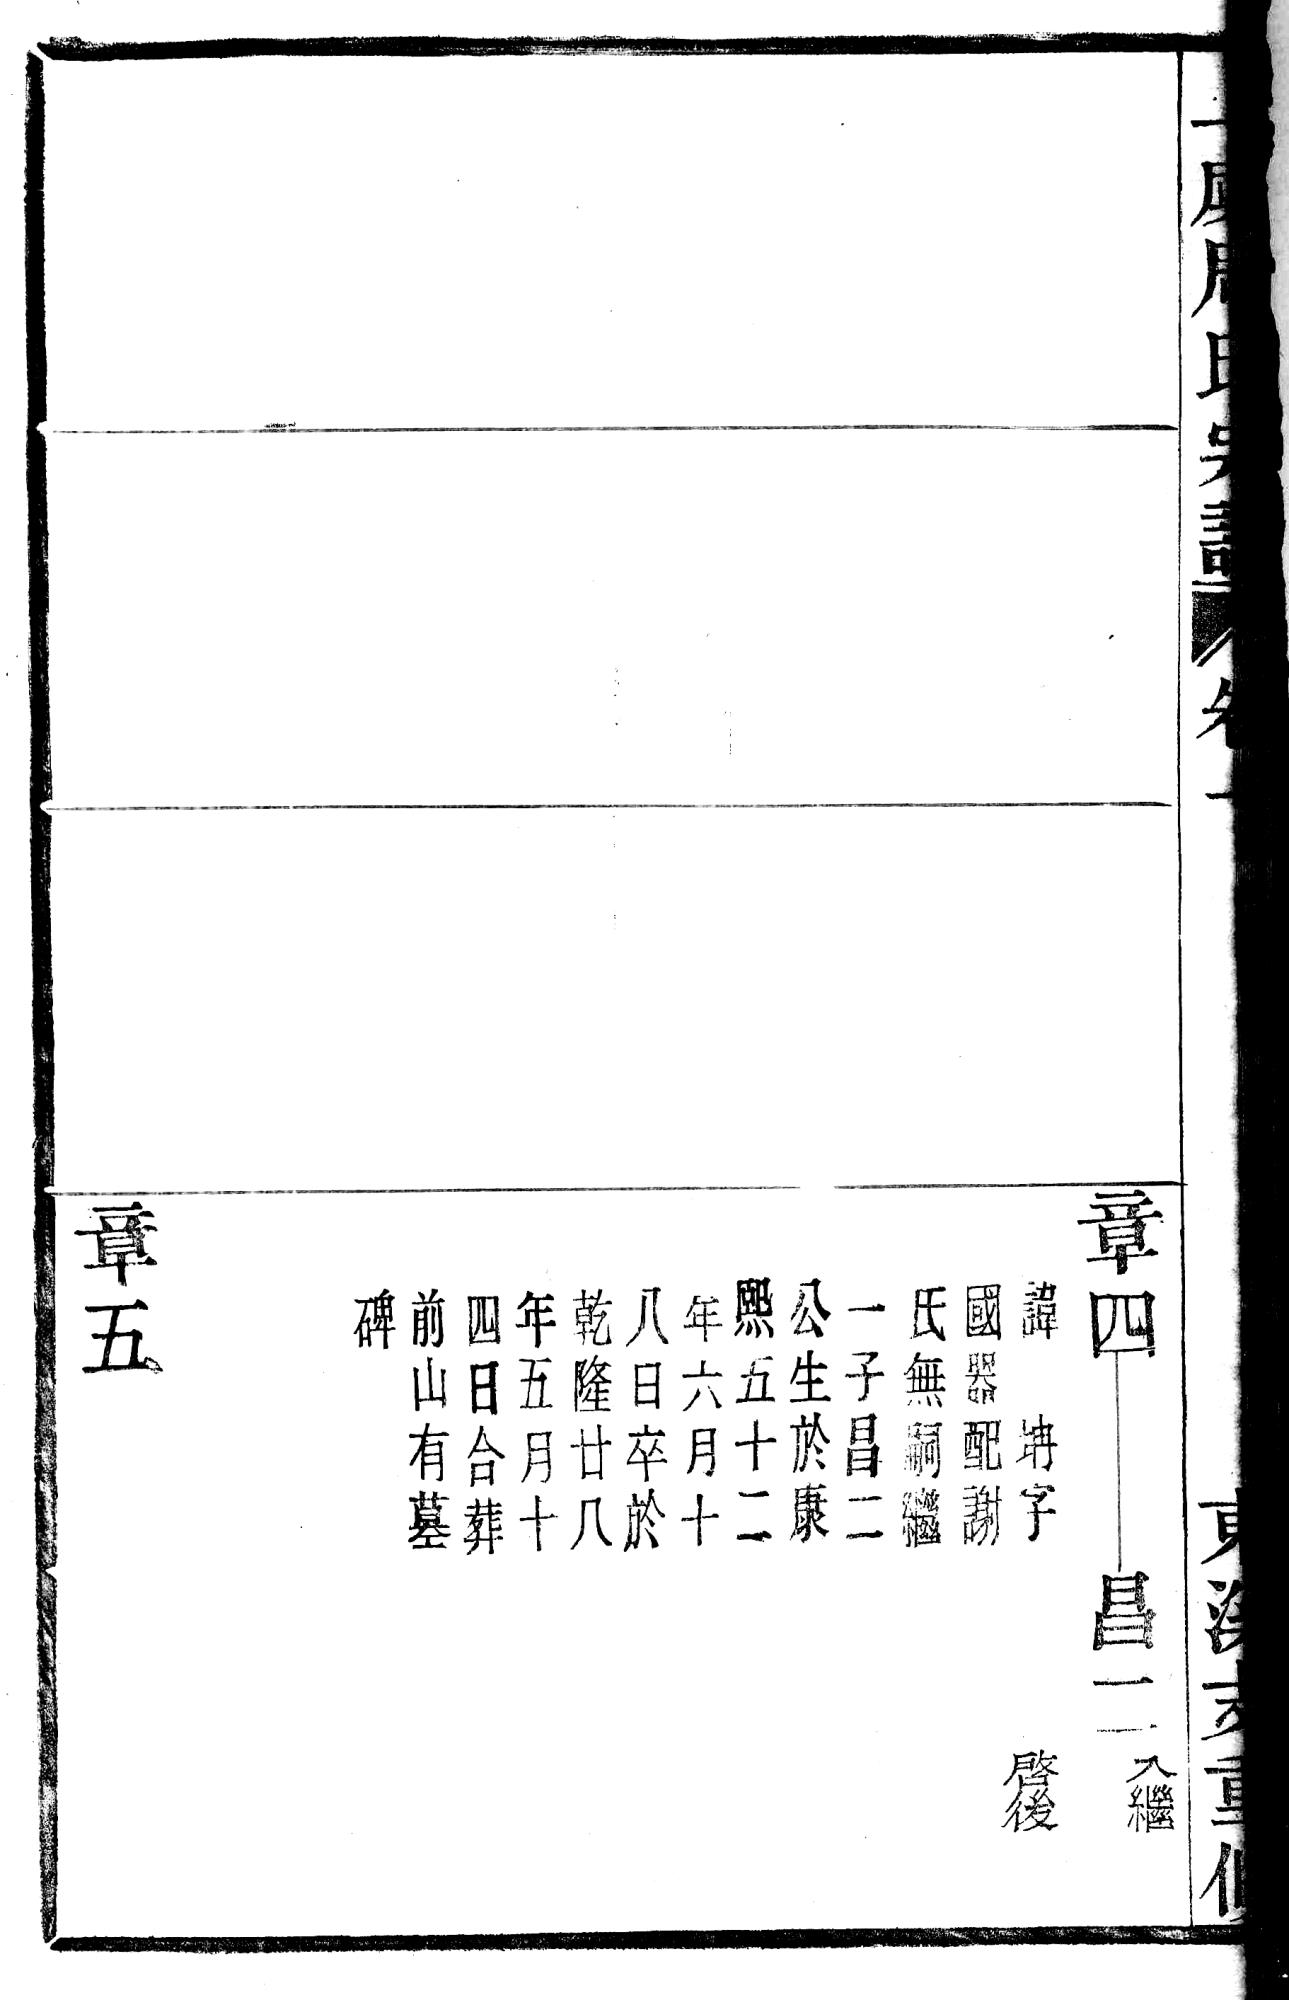 氏宗譜 卷一
東溪支重修
章四 昌二 入繼
諱 字 啓後
國器配謝
氏無嗣繼
一子昌二
公生於康
熙五十二
年六月十
八日卒於
乾隆廿八
年五月十
四日合葬
前山有墓
碑
章五